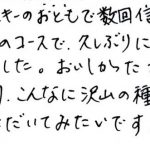 キーのおともで数回信
のコースで、久しぶりに
した。おいしかった
り、こんなに沢山の種
ただいてみたいです